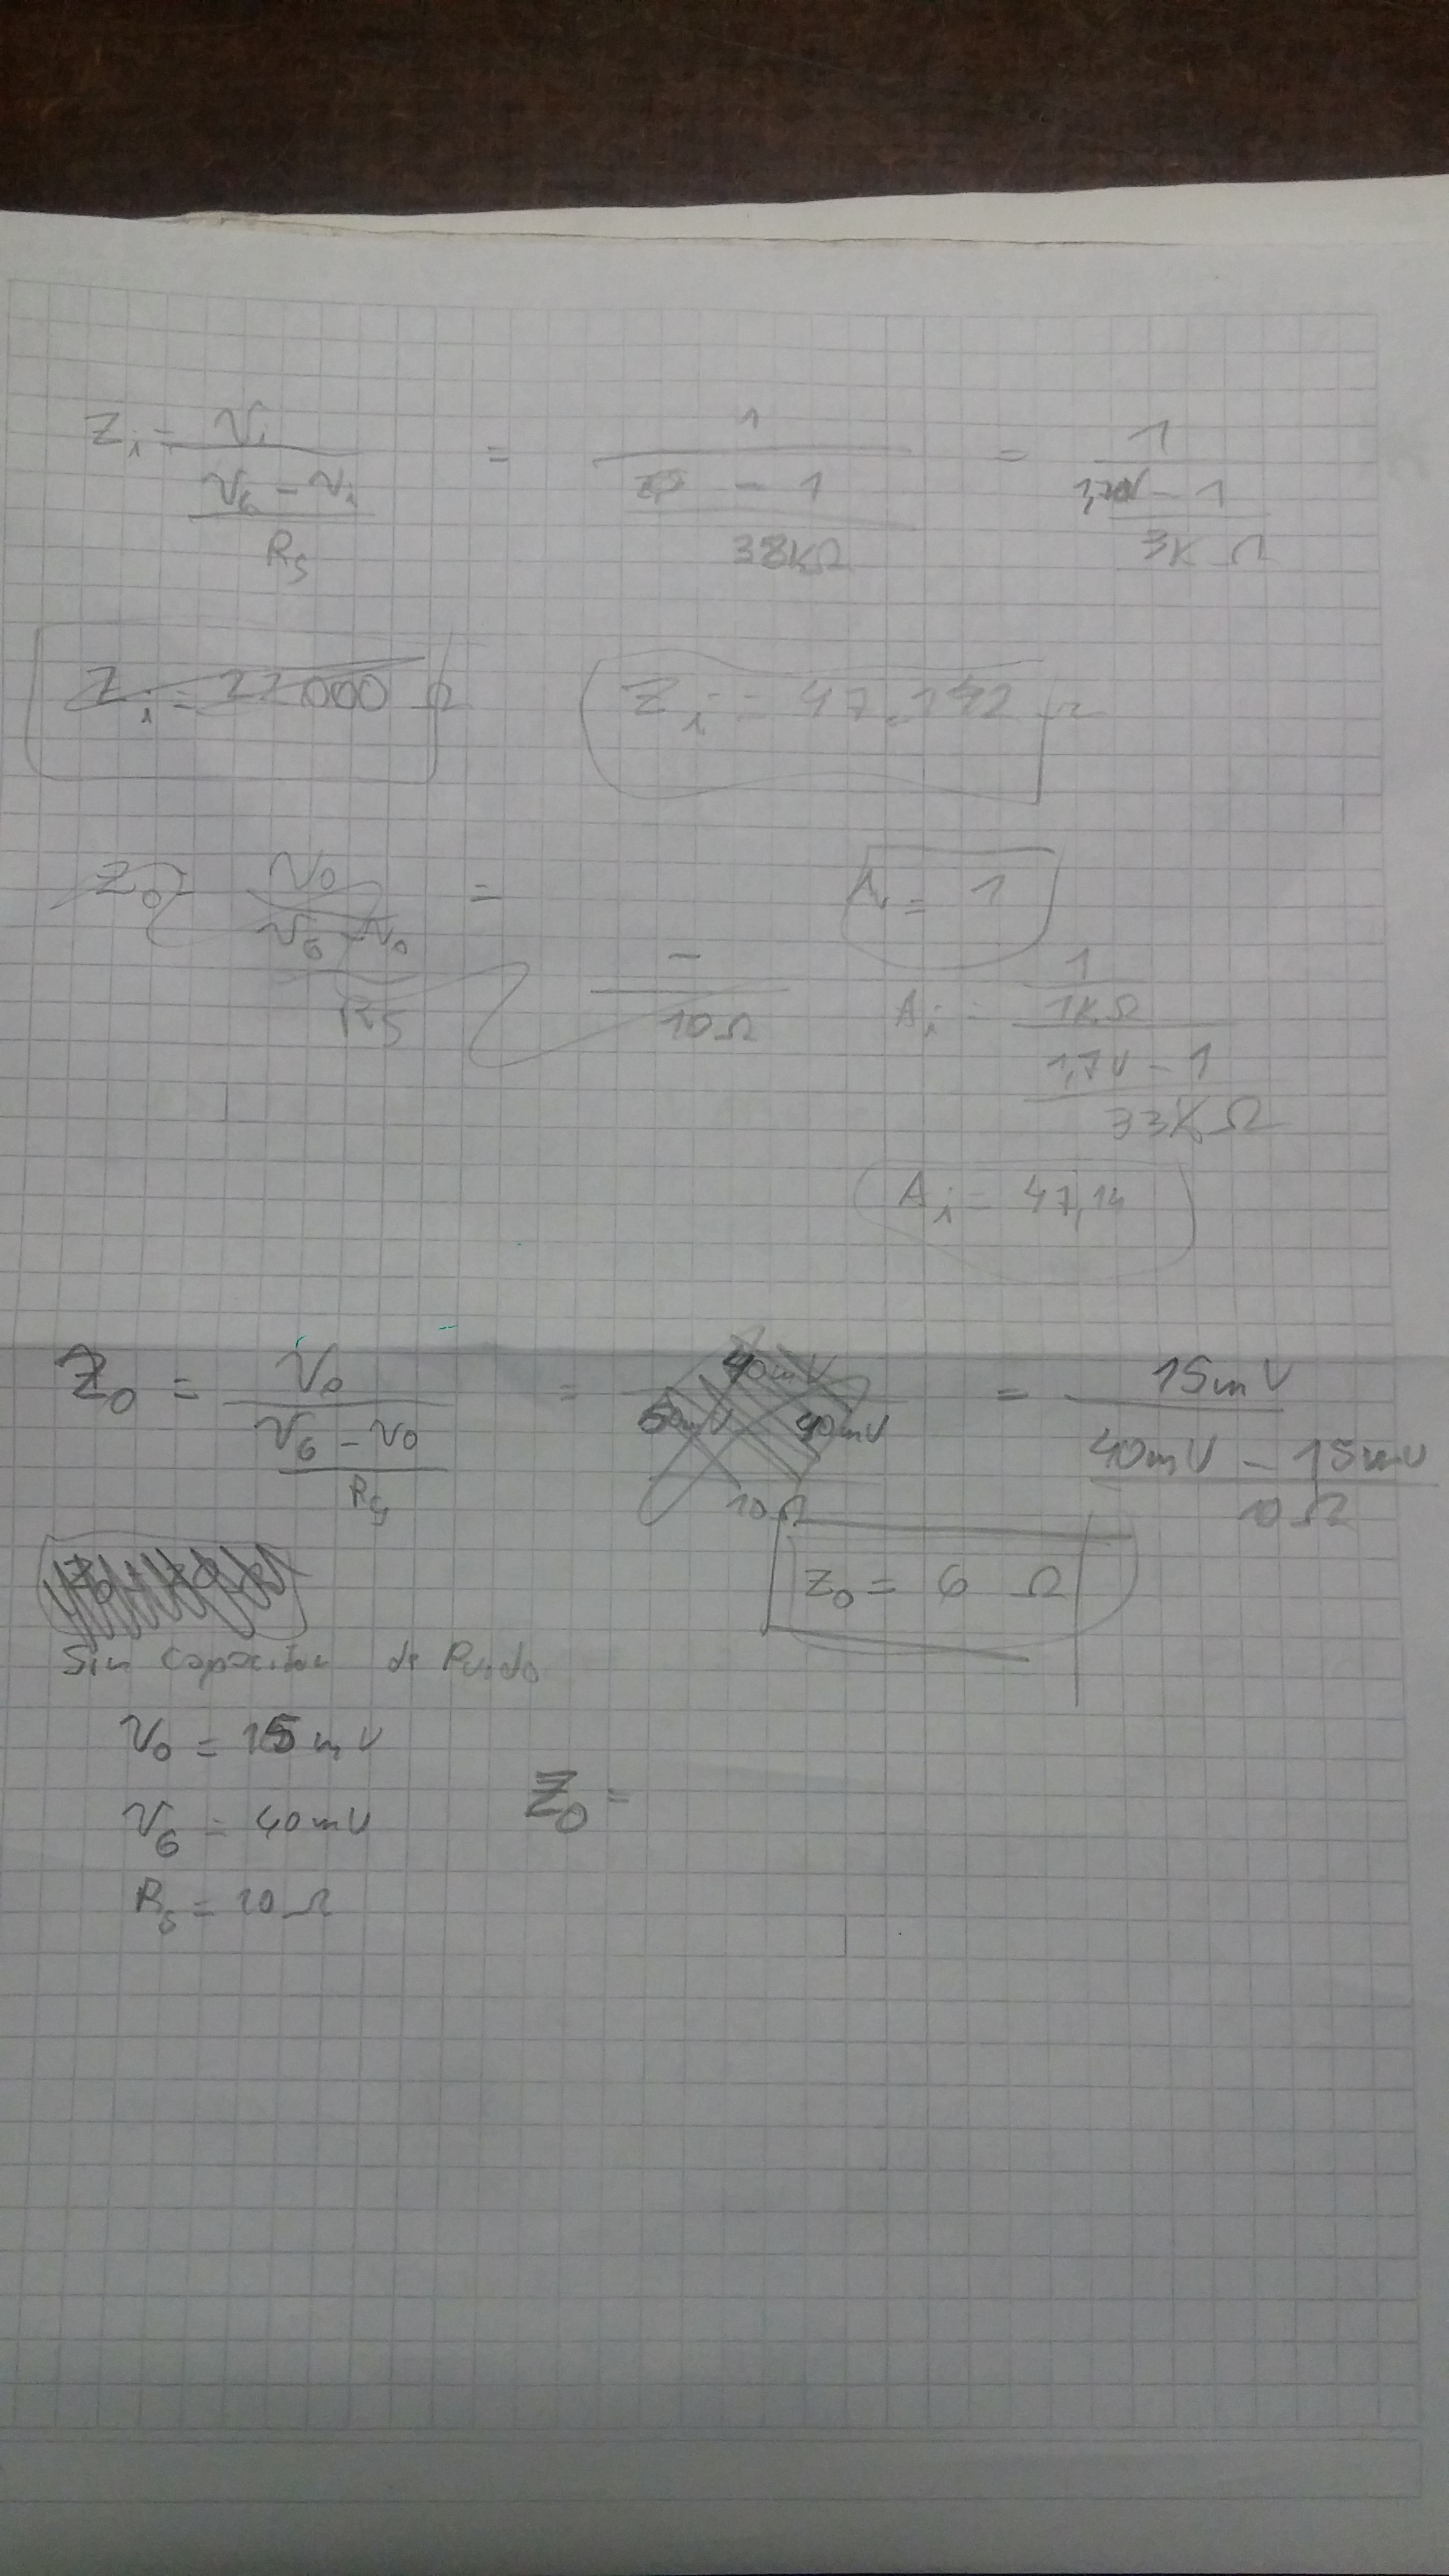 Zi = Vi / ((VG - Vi) / RS) = 1 / (( - 1) / 33KΩ) = 1 / (( - 1) / 3K Ω)
Zi = 22000 Ω Zi = 47.142 Ω
Zo = Vo / ((VG - Vo) / RS) = - / 10Ω
A = 1
Ai = (1 / 1KΩ) / ((1,7V - 1) / 33KΩ)
Ai = 47,14
Zo = Vo / ((VG - Vo) / RS) = 40mV / ((60mV 40mV) / 10Ω) = 15mV / ((40mV - 15mV) / 10Ω)
Zo = 6 Ω
Sin capacitor de
Vo = 15mV
Zo =
VG = 40mV
RS = 10Ω